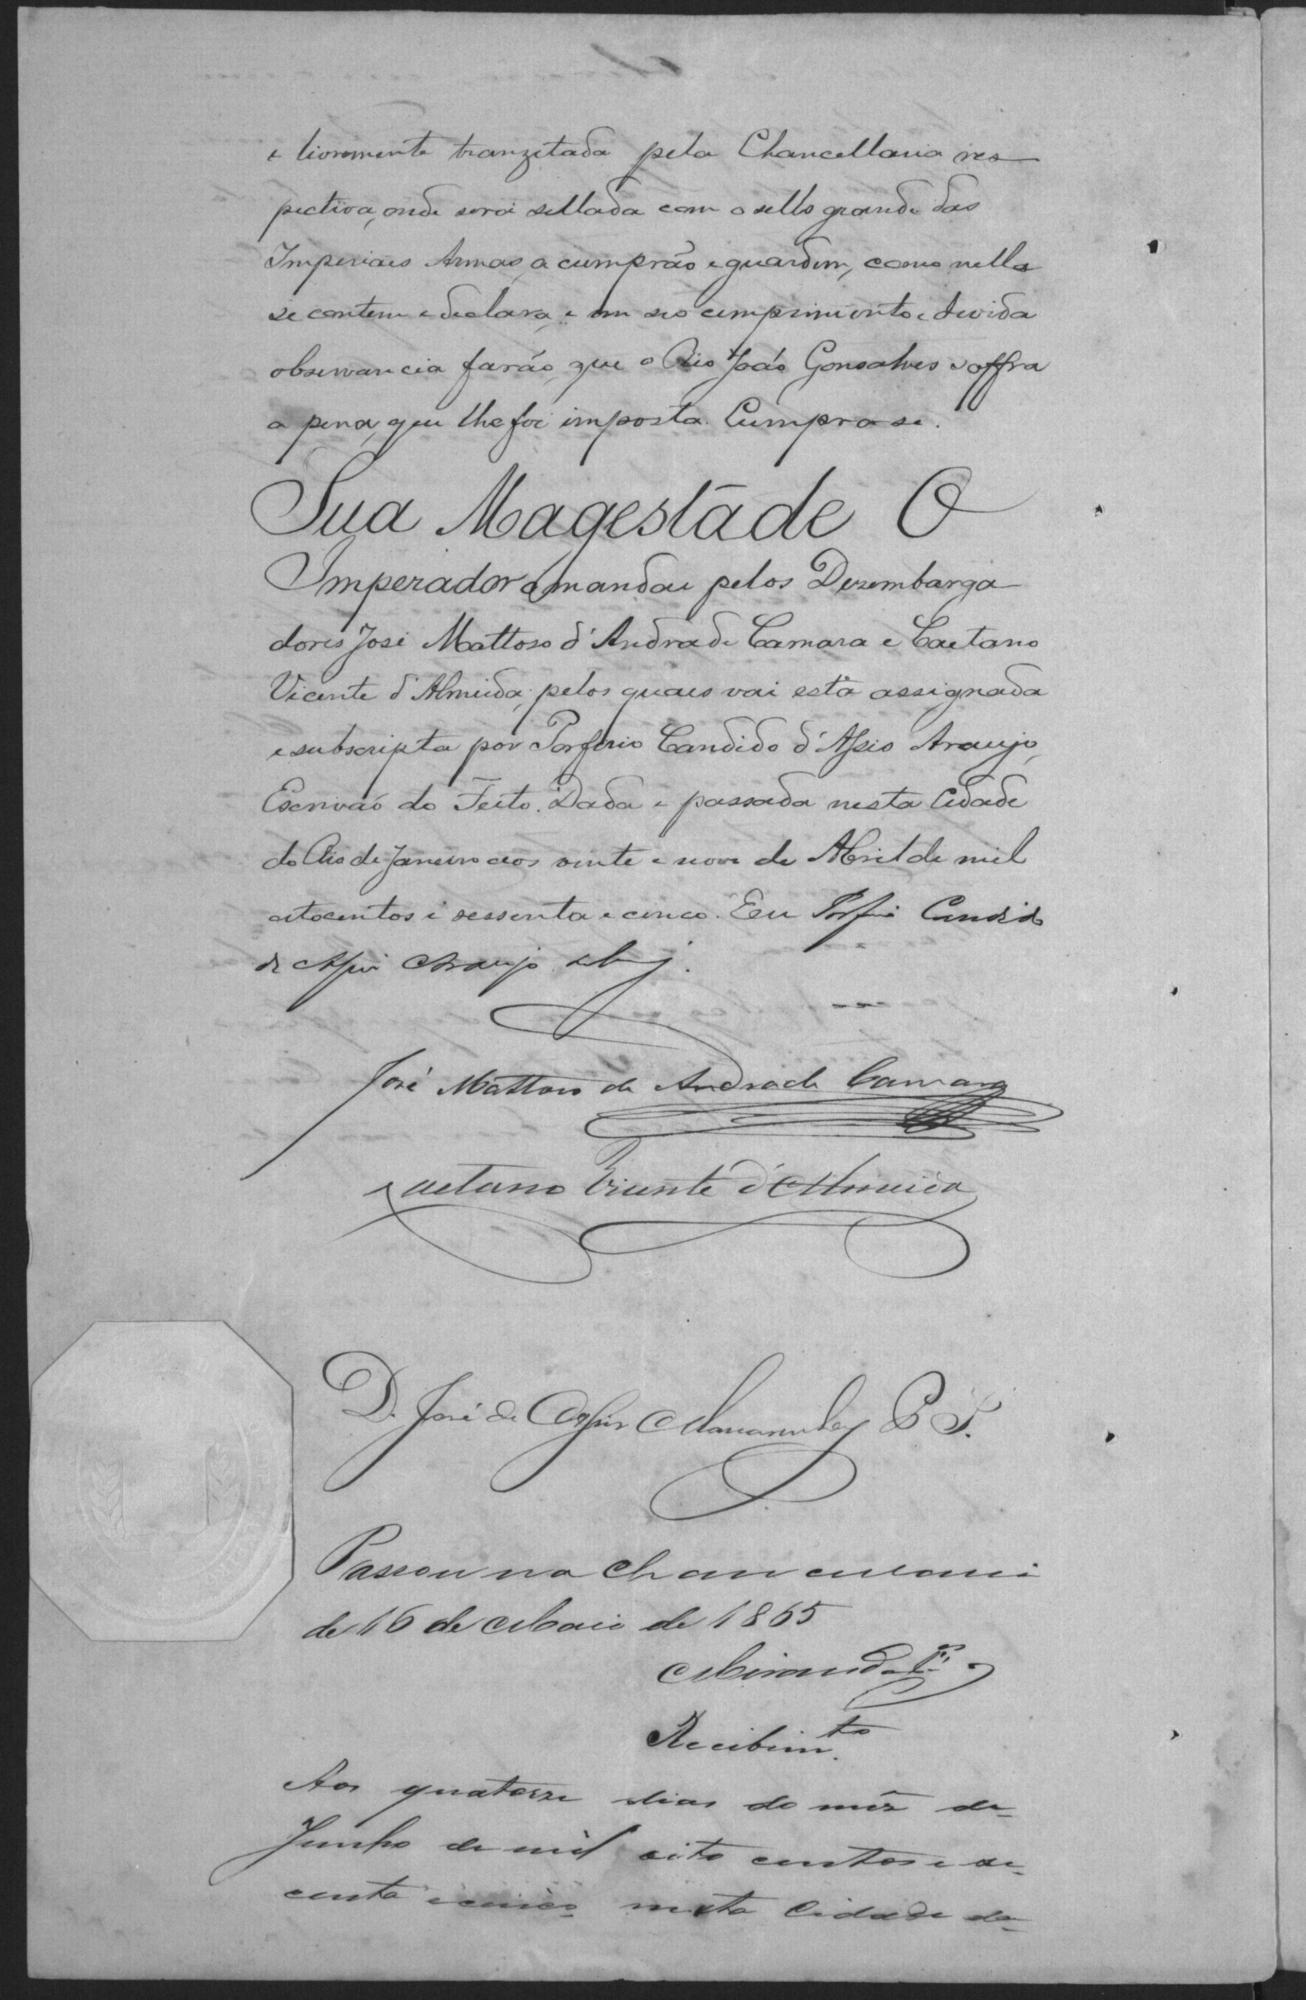 e livremente tranzitada pela Chancellaria res
pectiva, onde será sellada com o sello grande das
Imperiaes Armas, a cumprão e guardem, como nella
se contem e declara, e em seo cumprimento e devida
observancia farão, que o Reo João Gonsalves soffra
a pena, que lhe foi imposta. Cumpra se.
Sua Magestade O
Imperador o mandou pelos Dezembarga
dores José Mattoso d'Andrade Camara e Caetano
Vicente d'Almeida, pelos quaes vai esta assignada
e subscripta por Porfirio Candido d'Assis Araujo,
Escrivaõ do Feito. Dada e passada nesta Cidade
do Rio de Janeiro aos vinte e nove de Abril de mil
oitocentos e sessenta e cinco. Eu Porfirio Candido
de Assis Araujo
José Mattoso de Andrade Camara
Caetano Vicente d'Almeida
D. José de Assis Mascarenhas P I.
Passou na Chancellaria
de 16 de Maio de 1865
Miranda
Recibim.to
Aos quatorze dias do mêz de
Junho de mil oito centos e se
centa e cinco nesta Cidade de